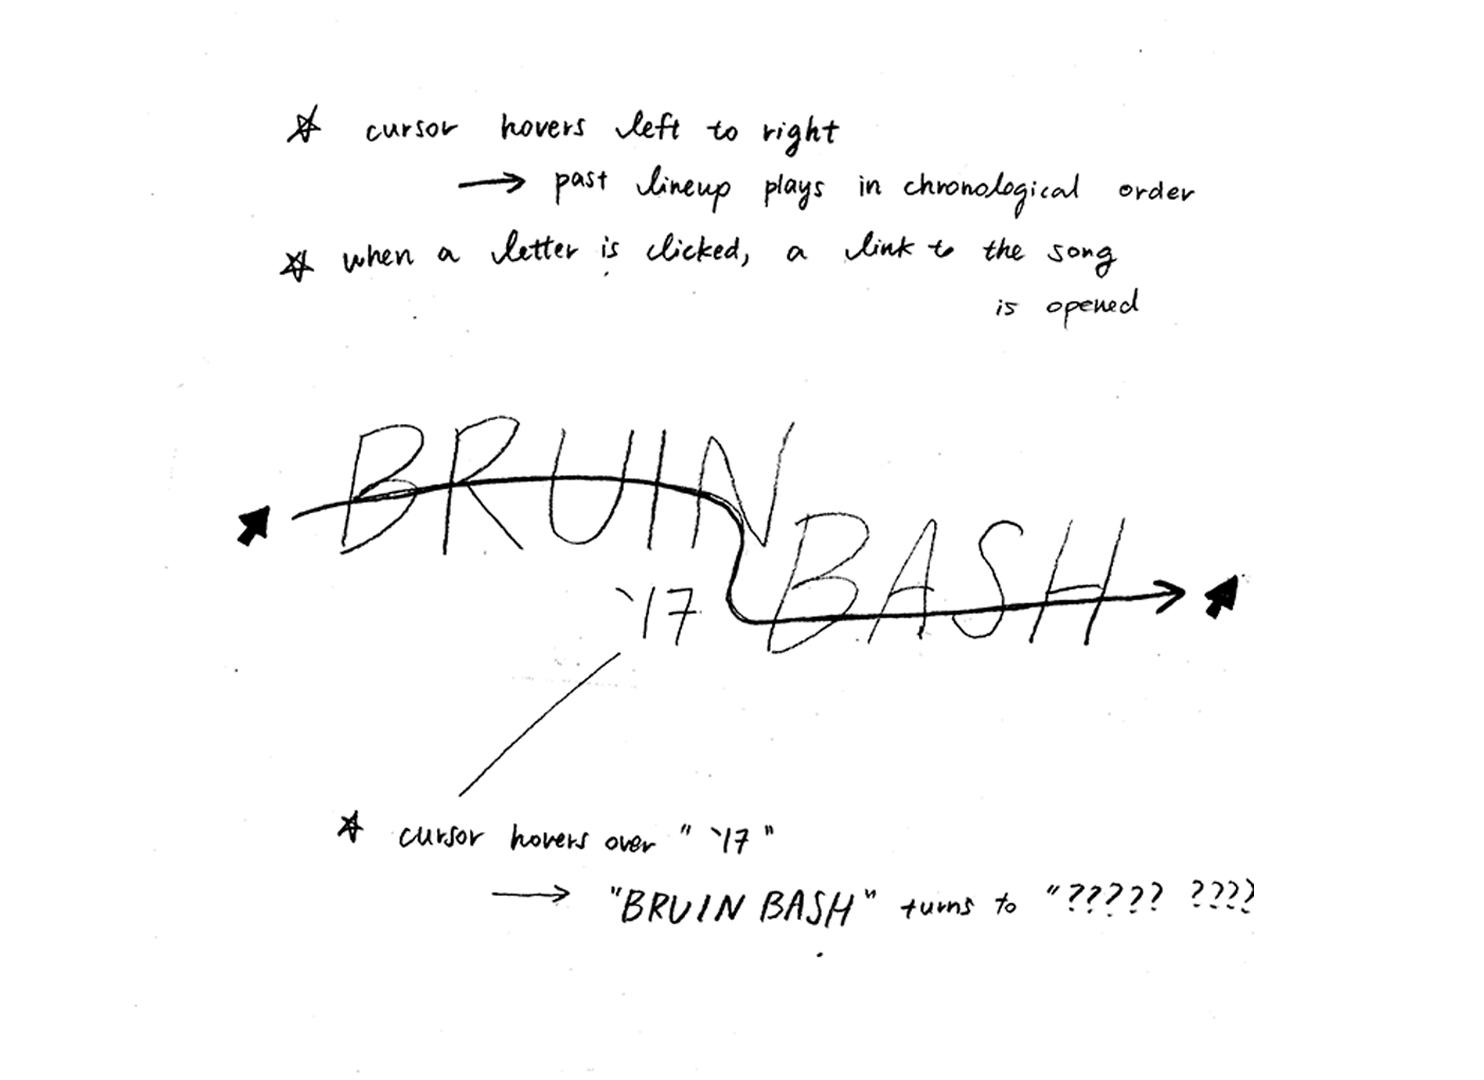 ☆ cursor hovers left to right
→ past lineup plays in chronological order
☆ when a letter is clicked, a link to the song
is opened
BRUIN
BASH
`17
☆ cursor hovers over " `17 "
→ "BRUIN BASH" turns to "????? ????